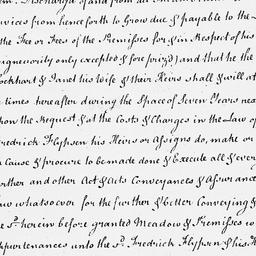 Discharge of and from all
vices from hence forth to grow due & payable to the
the Fee or Fees of the Premisses for & in Respect of his
igneurity only excepted & fore priz'd) and that he the
ockhart & Janet his Wife & their Heirs shall & will at
times hereafter during the Space of Seven Years nex
pon the Request & at the Costs & Charges in the Law of
redrick Flypsen his Heirs or Assigns do, make or
Cause & procure to be made done & Execute all & every
urther and other Act & Acts Conveyances & Assurance
aw whatsoever for the further & better Conveying &
e sd. herein before granted Meadow & Premisses w
ppurtenances unto the sd. Fredrick Flypsen & his H